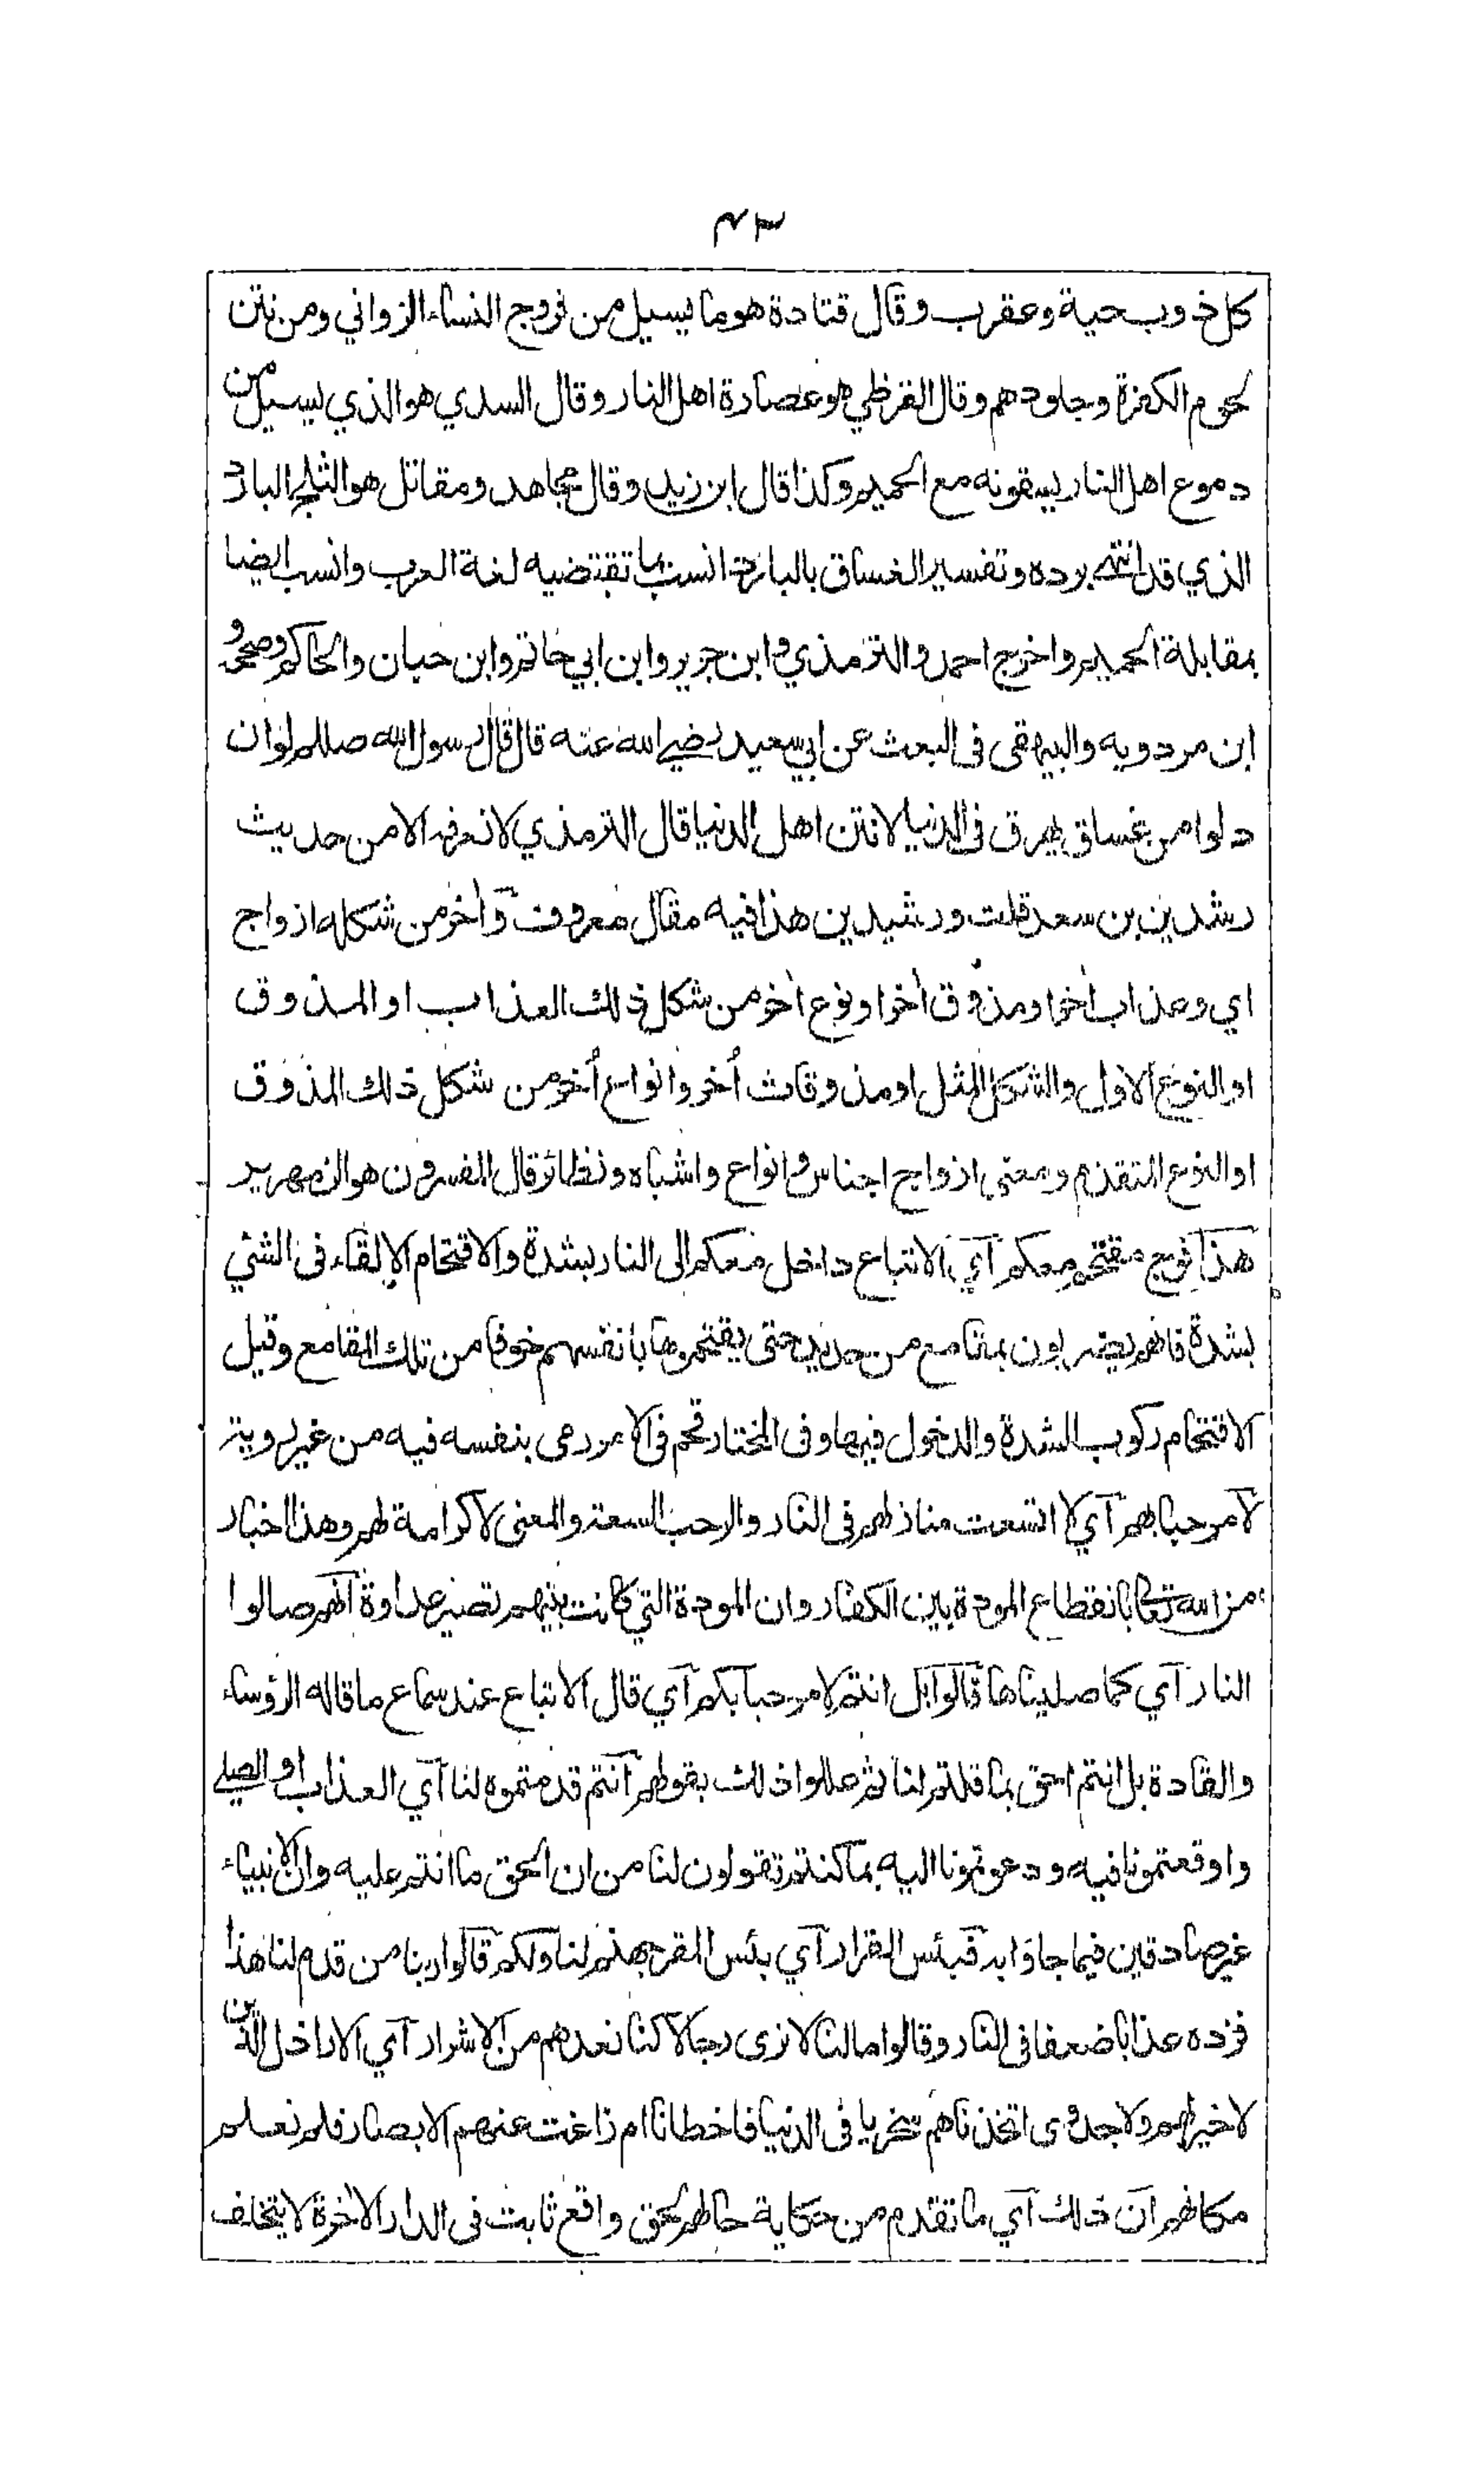 ٤٣
كل ذوب حية وعقرب وقال قتادة هو ما يسيل من فروج النساء الزواني ومن نتن
لحوم الكفرة وجلودهم وقال القرظي هو عصارة اهل النار وقال السدي هو الذي يسيل من
دموع اهل النار يسقونه مع الحميم وكذا قال ابن زيد وقال مجاهد ومقاتل هو الثلج البارد
الذي قد انتهى برده وتفسير الغساق بالبارد انسب بما تقتضيه لغة العرب وانسب ايضا
بمقابلة الحميم واخرج احمد والترمذي وابن جرير وابن ابي حاتم وابن حبان والحاكم وصححه و
ابن مردويه والبيهقي فى البعث عن ابي سعيد رضي الله عنه قال قال رسول الله صللم لو ان
دلوا من غساق يهرق فى الدنيا لانتن اهل الدنيا قال الترمذي لا نعرفه الا من حديث
رشدين بن سعد قلت ورشيدين هذا فيه مقال معروف وآخر من شكله ازواج
اي وعذاب اخر او مذوق اخر او نوع اخر من شكل ذلك العذاب او المذوق
او النوع الاول والشكل المثل او مذوقات أخر وانواع أخر من شكل ذلك المذوق
او النوع المتقدم ومعنى ازواج اجناس وانواع واشباه ونظائر قال المفسرون هو الزمهرير
هذا فوج مقتحم معكم آي الاتباع داخل معكم الى النار بشدة والاقتحام الالقاء فى الشئ
بشدة فانهم يضربون بمقامع من حديد حتى يقتحموها بانفسهم خوفا من تلك المقامع وقيل
الاقتحام ركوب الشدة والدخول فيها وفى المختار قحم فى الامر رمى بنفسه فيه من غير روية
لآ مرحبا بهم آي لا اتسعت منازلهم فى النار والرحب السعة والمعنى لا كرامة لهم وهذا اخبار
من الله تعالى بانقطاع المودة بين الكفار وان المودة التي كانت بينهم تصير عداوة آنهم صالوا
النار آي كما صليناها قالوا بل انتم لا مرحبا بكم آي قال الاتباع عند سماع ما قاله الرؤساء
والقادة بل انتم احق بما قلتم لنا ثم عللوا ذلك بقولهم آنتم قدمتموه لنا آي العذاب او الصلي
واوقعتمونا فيه ودعوتمونا اليه بما كنتم تقولون لنا من ان الحق ما انتم عليه وان الانبياء
غير صادقين فيما جاؤا به فبئس القرار آي بئس المقر جهنم لنا ولكم قالوا ربنا من قدم لنا هذا
فزده عذابا ضعفا فى النار وقالوا ما لنا لا نرى رجالا كنا نعدهم من الاشرار آي الاراذل الذين
لا خير لهم ولا جدوى اتخذناهم سخريا فى الدنيا فاخطانا ام زاغت عنهم الابصار فلم نعلم
مكانهم آن ذلك آي ما تقدم من حكاية حالهم لحق واقع ثابت فى الدار الاخرة لا يتخلف